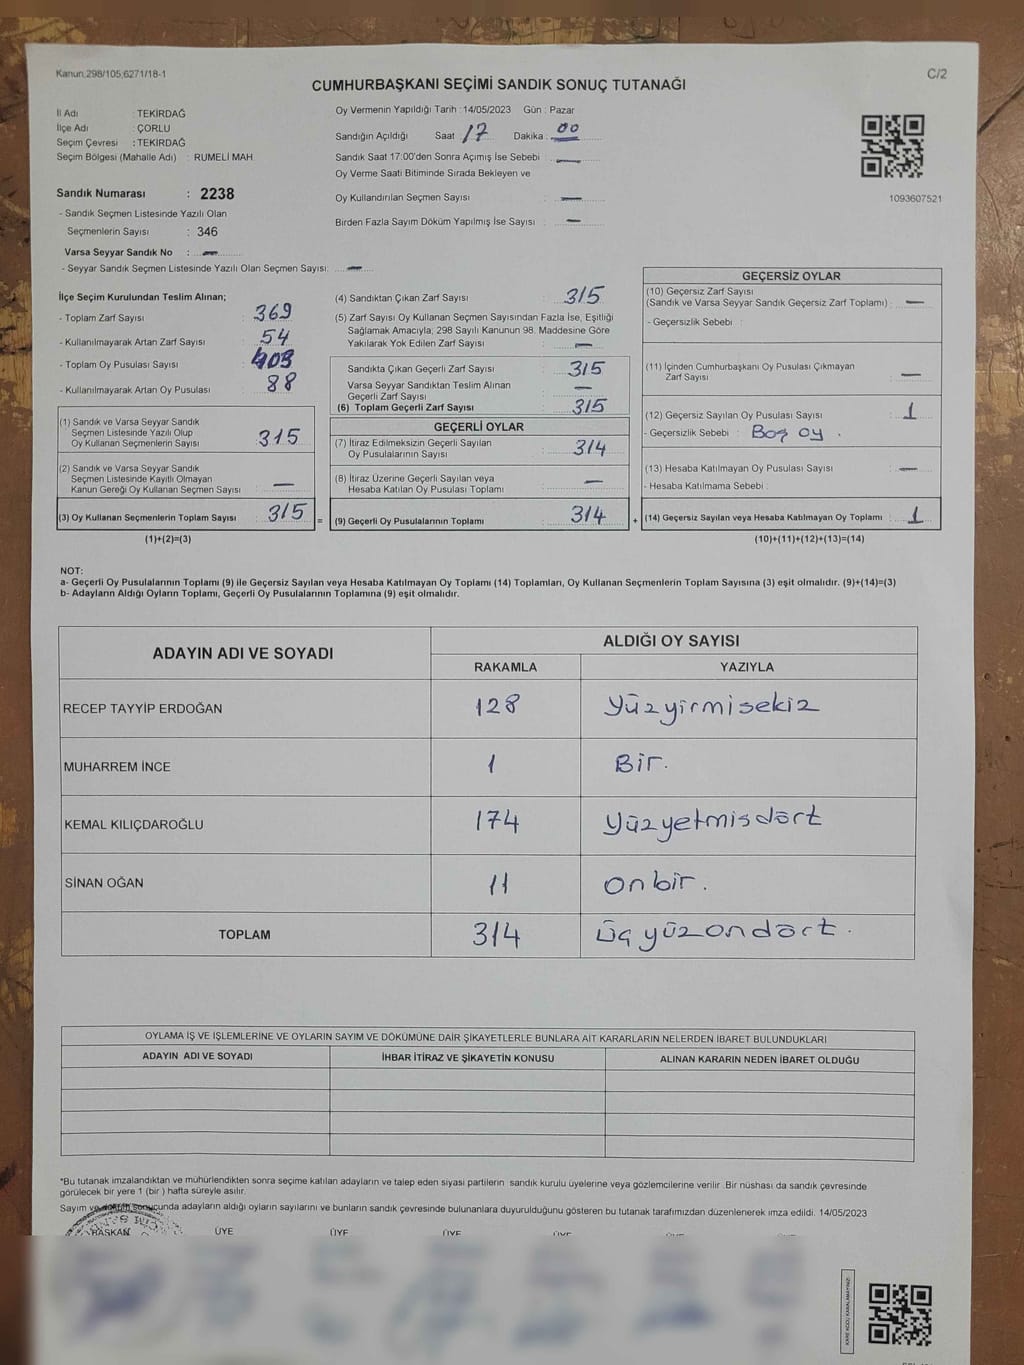 Kanun;298/105;6271/18-1
C/2
CUMHURBAŞKANI SEÇİMİ SANDIK SONUÇ TUTANAĞI
İl Adı : TEKİRDAĞ
İlçe Adı : ÇORLU
Seçim Çevresi : TEKİRDAĞ
Seçim Bölgesi (Mahalle Adı) : RUMELİ MAH
Sandık Numarası : 2238
- Sandık Seçmen Listesinde Yazılı Olan
Seçmenlerin Sayısı : 346
Varsa Seyyar Sandık No : —
- Seyyar Sandık Seçmen Listesinde Yazılı Olan Seçmen Sayısı: —
Oy Vermenin Yapıldığı Tarih :14/05/2023 Gün : Pazar
Sandığın Açıldığı Saat 17 Dakika : 00
Sandık Saat 17:00'den Sonra Açımış İse Sebebi : —
Oy Verme Saati Bitiminde Sırada Bekleyen ve
Oy Kullandırılan Seçmen Sayısı : —
Birden Fazla Sayım Döküm Yapılmış İse Sayısı : —
1093607521
İlçe Seçim Kurulundan Teslim Alınan;
- Toplam Zarf Sayısı : 369
- Kullanılmayarak Artan Zarf Sayısı : 54
- Toplam Oy Pusulası Sayısı : 403
- Kullanılmayarak Artan Oy Pusulası : 88
(1) Sandık ve Varsa Seyyar Sandık
Seçmen Listesinde Yazılı Olup
Oy Kullanan Seçmenlerin Sayısı : 315
(2) Sandık ve Varsa Seyyar Sandık
Seçmen Listesinde Kayıtlı Olmayan
Kanun Gereği Oy Kullanan Seçmen Sayısı : —
(3) Oy Kullanan Seçmenlerin Toplam Sayısı : 315
(1)+(2)=(3)
(4) Sandıktan Çıkan Zarf Sayısı : 315
(5) Zarf Sayısı Oy Kullanan Seçmen Sayısından Fazla İse, Eşitliği
Sağlamak Amacıyla; 298 Sayılı Kanunun 98. Maddesine Göre
Yakılarak Yok Edilen Zarf Sayısı : —
Sandıkta Çıkan Geçerli Zarf Sayısı : 315
Varsa Seyyar Sandıktan Teslim Alınan
Geçerli Zarf Sayısı : —
(6) Toplam Geçerli Zarf Sayısı : 315
GEÇERLİ OYLAR
(7) İtiraz Edilmeksizin Geçerli Sayılan
Oy Pusulalarının Sayısı : 314
(8) İtiraz Üzerine Geçerli Sayılan veya
Hesaba Katılan Oy Pusulası Toplamı : —
= (9) Geçerli Oy Pusulalarının Toplamı : 314 +
GEÇERSİZ OYLAR
(10) Geçersiz Zarf Sayısı
(Sandık ve Varsa Seyyar Sandık Geçersiz Zarf Toplamı) : —
- Geçersizlik Sebebi :
(11) İçinden Cumhurbaşkanı Oy Pusulası Çıkmayan
Zarf Sayısı : —
(12) Geçersiz Sayılan Oy Pusulası Sayısı : 1
- Geçersizlik Sebebi : Boş oy .
(13) Hesaba Katılmayan Oy Pusulası Sayısı : —
- Hesaba Katılmama Sebebi :
(14) Geçersiz Sayılan veya Hesaba Katılmayan Oy Toplamı : 1
(10)+(11)+(12)+(13)=(14)
NOT:
a- Geçerli Oy Pusulalarının Toplamı (9) ile Geçersiz Sayılan veya Hesaba Katılmayan Oy Toplamı (14) Toplamları, Oy Kullanan Seçmenlerin Toplam Sayısına (3) eşit olmalıdır. (9)+(14)=(3)
b- Adayların Aldığı Oyların Toplamı, Geçerli Oy Pusulalarının Toplamına (9) eşit olmalıdır.
ADAYIN ADI VE SOYADI ALDIĞI OY SAYISI
RAKAMLA YAZIYLA
RECEP TAYYİP ERDOĞAN 128 Yüzyirmisekiz
MUHARREM İNCE 1 Bir.
KEMAL KILIÇDAROĞLU 174 Yüzyetmisdört
SİNAN OĞAN 11 onbir.
TOPLAM 314 üçyüzondört.
OYLAMA İŞ VE İŞLEMLERİNE VE OYLARIN SAYIM VE DÖKÜMÜNE DAİR ŞİKAYETLERLE BUNLARA AİT KARARLARIN NELERDEN İBARET BULUNDUKLARI
ADAYIN ADI VE SOYADI İHBAR İTİRAZ VE ŞİKAYETİN KONUSU ALINAN KARARIN NEDEN İBARET OLDUĞU
*Bu tutanak imzalandıktan ve mühürlendikten sonra seçime katılan adayların ve talep eden siyasi partilerin sandık kurulu üyelerine veya gözlemcilerine verilir. Bir nüshası da sandık çevresinde
görülecek bir yere 1 (bir ) hafta süreyle asılır.
Sayım ve döküm sonucunda adayların aldığı oyların sayılarını ve bunların sandık çevresinde bulunanlara duyurulduğunu gösteren bu tutanak tarafımızdan düzenlenerek imza edildi. 14/05/2023
BAŞKAN ÜYE ÜYE ÜYE ÜYE ÜYE
KARE KODU KARALAMAYINIZ!